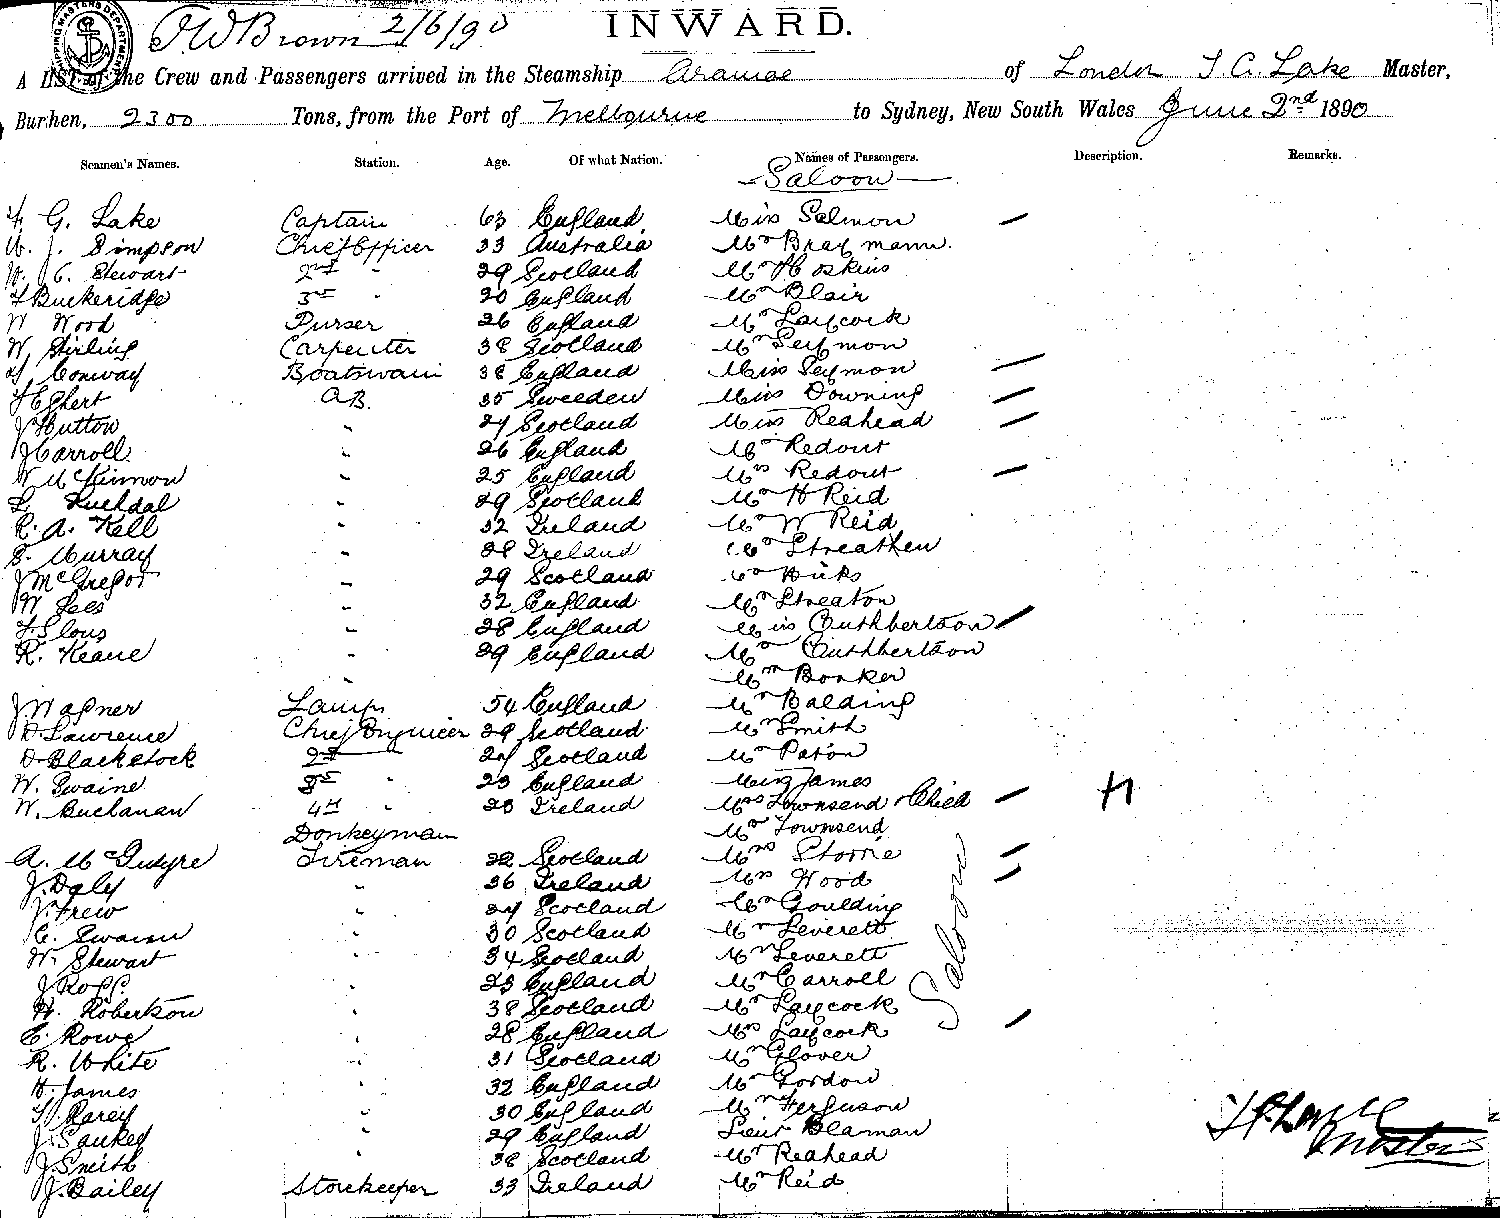 J W Brown 2/6/90
INWARD.
A LIST of the Crew and Passengers arrived in the Steamship Aramac of London T G. Lake Master,
Burthen, 2300 Tons, from the Port of Melbourne to Sydney, New South Wales June 2nd 1890
Seamen's Names. Station. Age. Of what Nation. Names of Passengers. Description. Remarks.
Saloon
G. Lake Captain 63 England Miss Salmon
J. Simpson Chief Officer 33 Australia Mr Braymann.
W. C. Stewart 2nd " 29 Scotland Mr Hoskins
Buckeridge 3rd " 20 England Mr Blair
W Wood Purser 26 England Mr Laycock
W. Stirling Carpenter 38 Scotland Mr Seymon
Conway Boatswain 38 England Miss Seymon
Eghert A.B. 35 Sweeden Miss Downing
J Hutton " 24 Scotland Miss Reahead
J Carroll " 26 England Mr Redout
N McKinnon " 25 England Mrs Redout
L Ruehdal " 29 Scotland Mr H Reid
R. A. Kell " 32 Ireland Mr W Reid
S. Murray " 28 Ireland Mr Streathen
J McGregor " 29 Scotland Mr Hicks
W Lees " 32 England Mr Streaton
F. Slous " 28 England Miss Cuthbertson
R. Keane " 29 England Mr Cuthbertson
" Mr Bonker
J Wagner Lamps 54 England Mr Balding
D. Lawrence Chief Engineer 29 Scotland Mr Smith
D. Blackstock 2nd 24 Scotland Mr Paton
W. Swaine 3rd " 23 England James
W. Buchanan 4th " 23 Ireland Mrs Townsend & Child H
Donkeyman Mr Townsend
A. McIntyre Fireman 22 Scotland Mrs Storrie
J. Daly " 36 Ireland Mrs Wood
J. Frew " 24 Scotland Mr Goulding
C. Swaisn " 30 Scotland Mr Leverett
W. Stewart " 34 Scotland Mr Leverett
J Ross " 23 England Mr Carroll
H. Robertson " 38 Scotland Mr Laycock
E. Rowe " 28 England Mrs Laycock
R. White " 31 Scotland Mr Glover
H. James " 32 England Mr Gordon
Carey " 30 England Mr Ferguson
J. Sankey " 29 England Lieut Blaman
J. Smith " 38 Scotland Mr Reahead
J. Bailey Storekeeper 33 Ireland Mr Reid
Saloon
Master